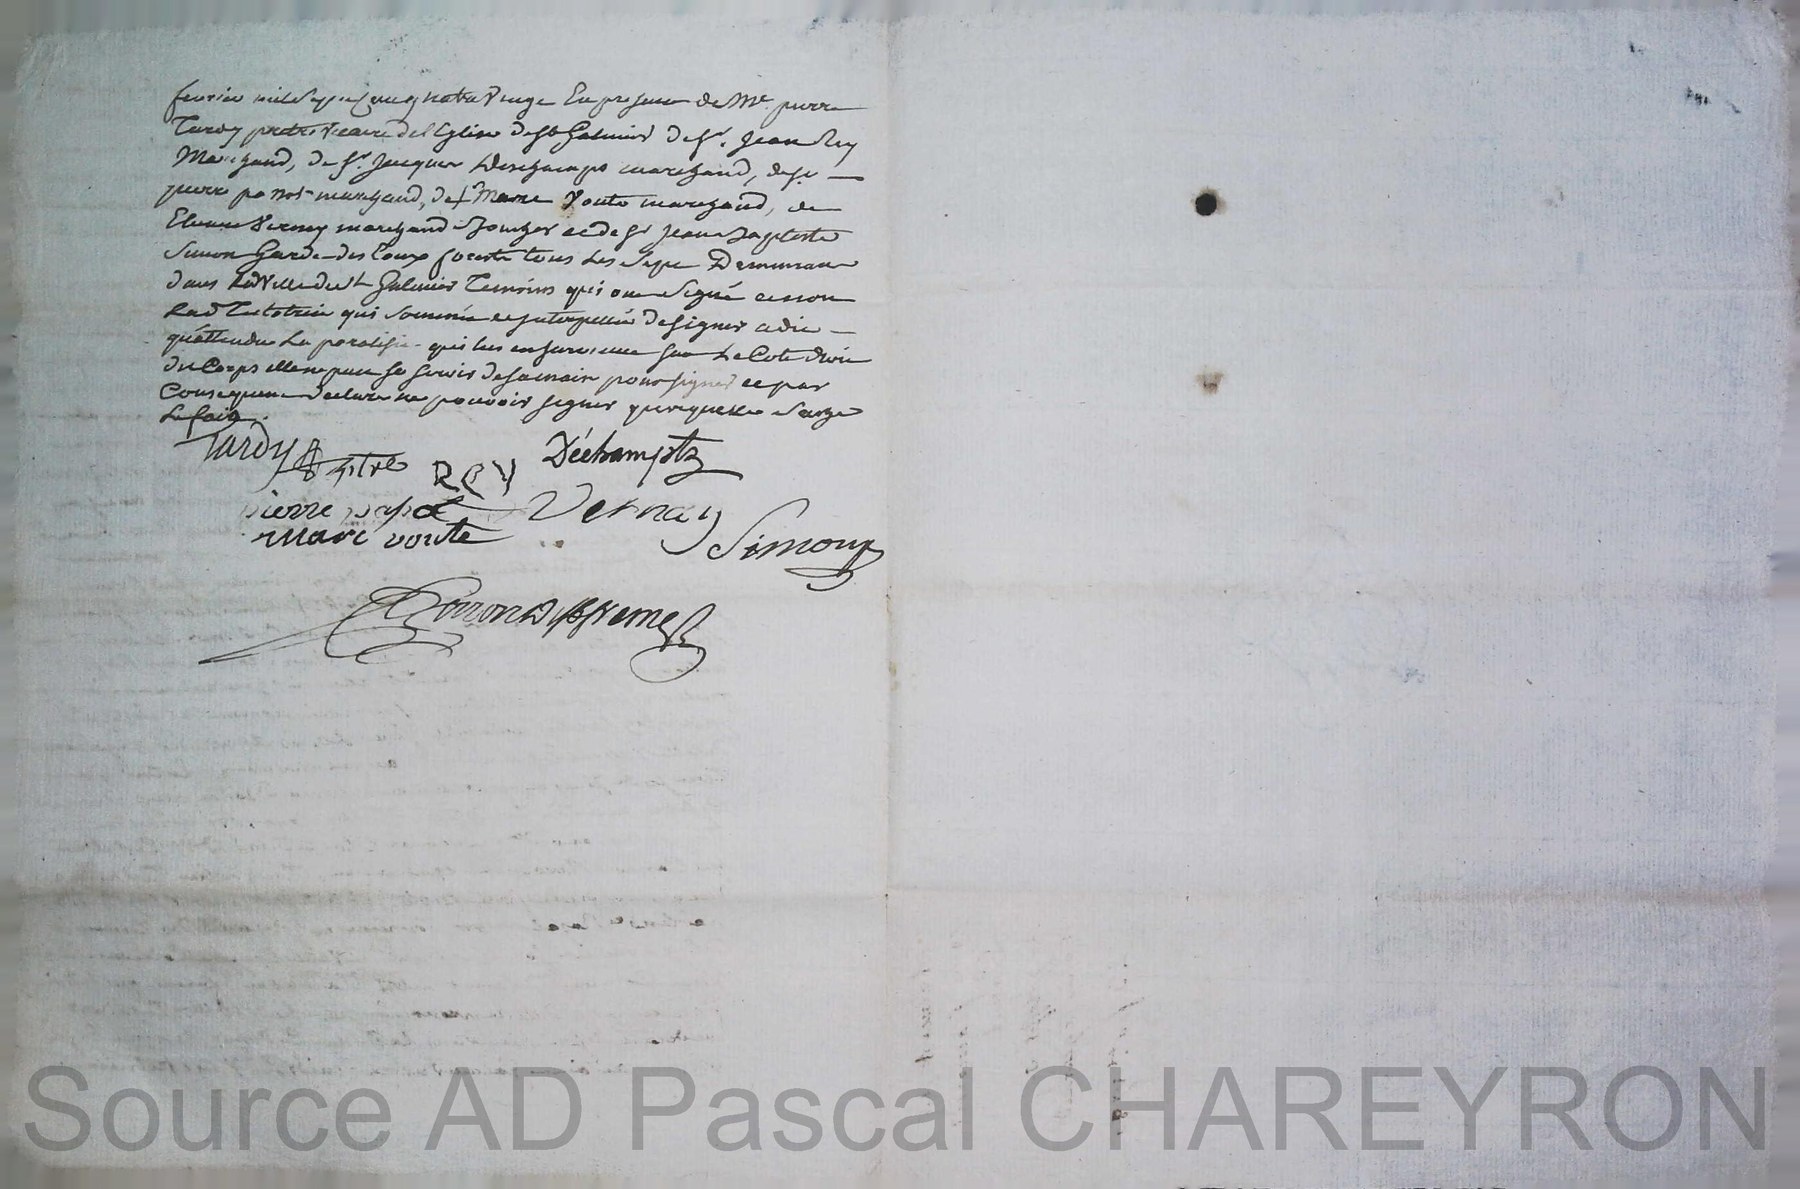 fevrier mil sept cent quatre vingt En presence de Me. pierre
Tardy pretre vicaire de lEglise de St Galmier de Sr. Jean Rey
Marchand, de Sr. Jacques Deschamps marchand, de Sr
pierre marchand, de Sr Marc Voute marchand, de
Etienne Verney marchand et de Sr Jean Baptiste
Simon Garde des Eaux forests tous les sept Demeurant
dans la Ville de St Galmier Temoins qui ont signé et non
lad Testatrice qui sommée et interpellée de signer a dit
qu'attendu la paralisie qui lui est survenue sur le Coté droit
du Corps elle ne peut se servir de sa main pour signer et par
Consequent declare ne pouvoir signer
le fait.
Tardy ptre REY Déchamptz
pierre Vernay
marc voute Simon
Source AD Pascal CHAREYRON